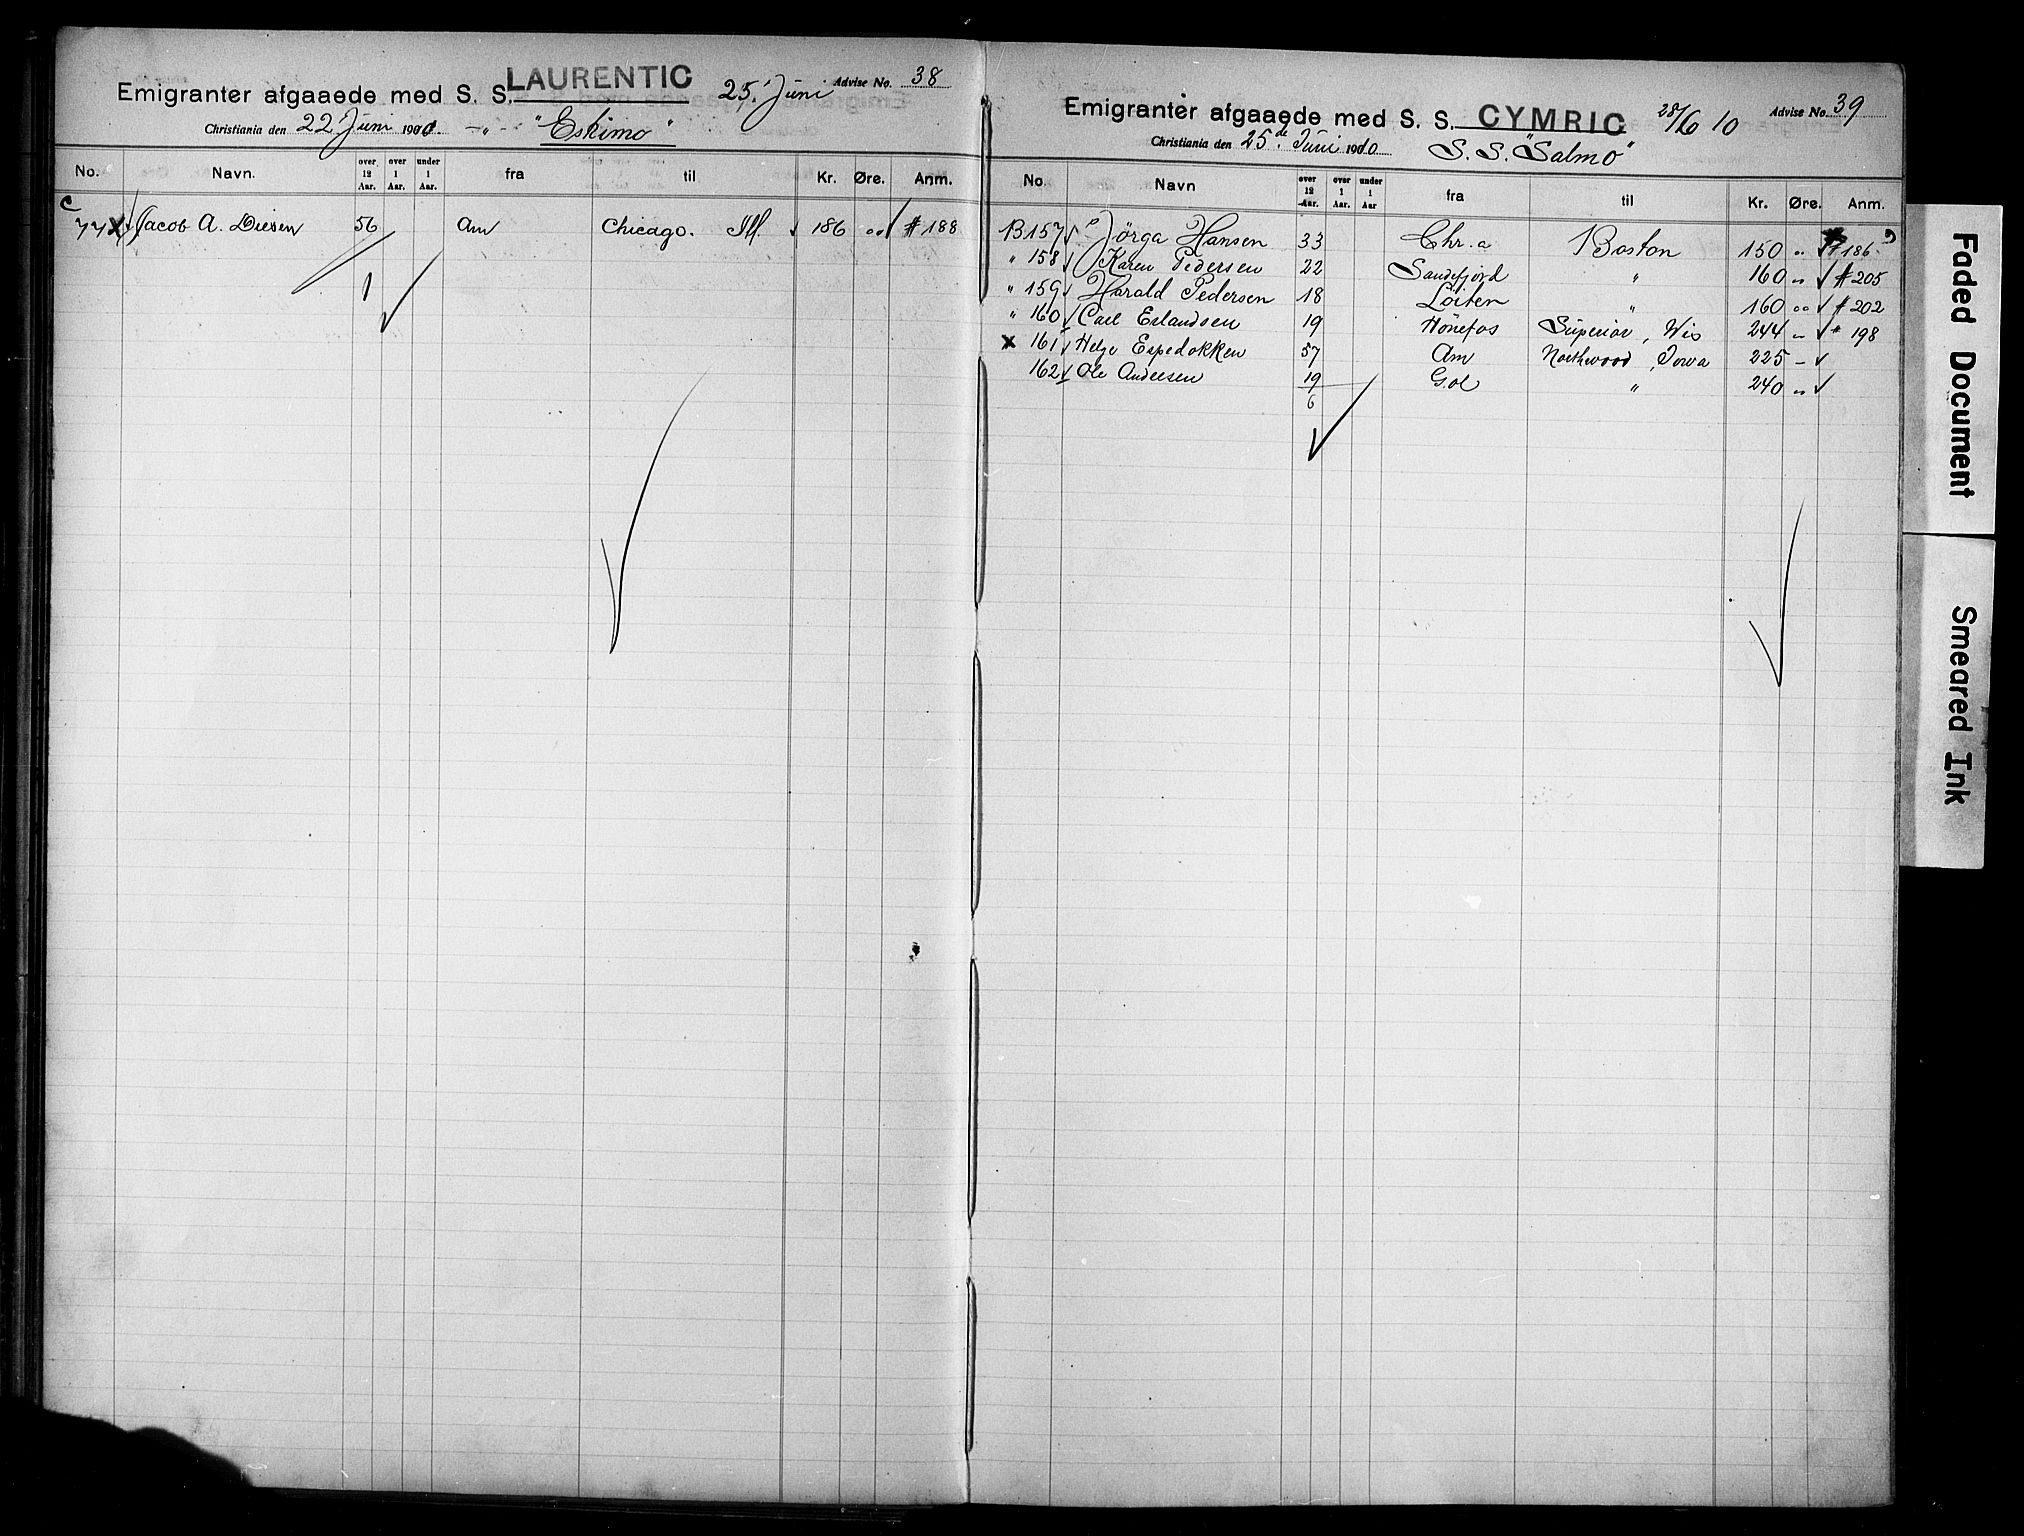 Emigranter afgaaede med S. S. LAURENTIC 25. Juni Advise No. 38
Christiania den 22 Juni 1910. — " — "Eskimo"
No. Navn. over 12 Aar. over 1 Aar. under 1 Aar. fra til Kr. Øre. Anm.
C
77 X √ Jacob A. Diesen 56 Am Chicago. Ill. √ 186 " √ # 188
1
Emigranter afgaaede med S. S. CYMRIC 28/6 10 Advise No. 39
Christiania den 25de Juni 1910. S. S. "Salmo"
No. Navn over 12 Aar. over 1 Aar. under 1 Aar fra til Kr. Øre. Anm.
B 157 √ Jörga Hansen 33 Chr.a Boston 150 " √ # 186
" 158 √ Karen Pedersen 22 Sandefjord " 160 " √ # 205
" 159 √ Harald Pedersen 18 Löiten " 160 " √ # 202
" 160 √ Carl Erlandsen 19 Hönefos Superior, Wis 244 " √ # 198
X 161 √ Helge Espedokken 57 Am Northwood, Iowa 225 — √
162 √ Ole Andersen 19 Gol " 240 " √
6
Faded Document
Smeared Ink